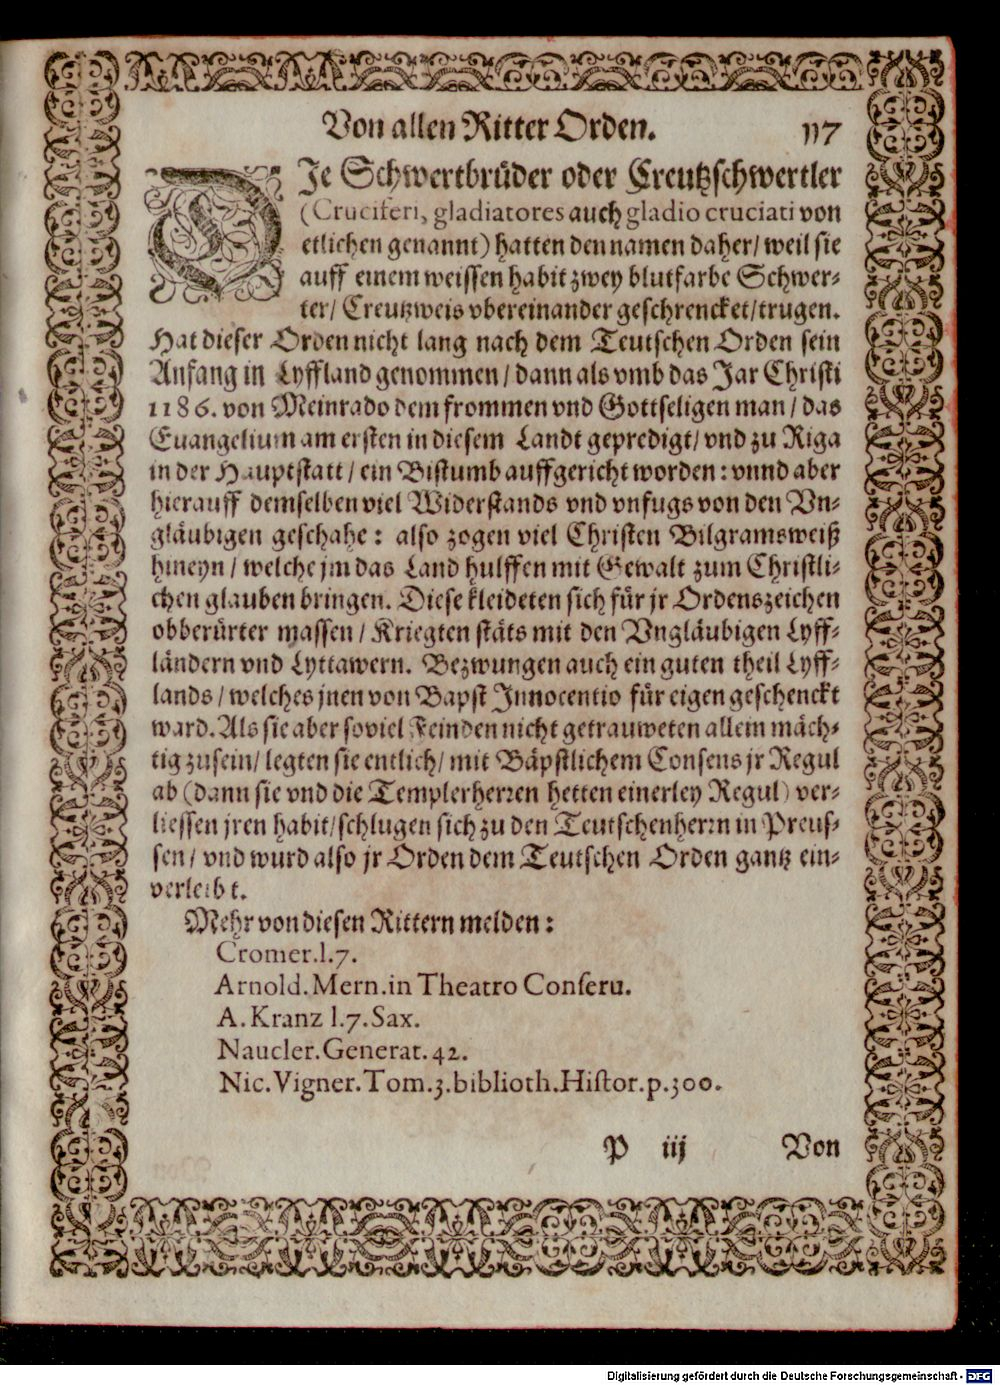 Von allen Ritter Orden. 117
DJe Schwertbrüder oder Creutzschwertler
(Cruciferi, gladiatores auch gladio cruciati von
etlichen genannt) hatten den namen daher/ weil sie
auff einem weissen habit zwey blutfarbe Schwer-
ter/ Creutzweis vbereinander geschrencket/ trugen.
Hat dieser Orden nicht lang nach dem Teutschen Orden sein
Anfang in Lyffland genommen/ dann als vmb das Jar Christi
1186. von Meinrado dem frommen vnd Gottseligen man/ das
Euangelium am ersten in diesem Landt gepredigt/ vnd zu Riga
in der Hauptstatt/ ein Bistumb auffgericht worden: vnnd aber
hierauff demselben viel Widerstands vnd vnfugs von den Vn-
gläubigen geschahe: also zogen viel Christen Bilgramsweiß
hineyn/ welche jm das Land hulffen mit Gewalt zum Christli-
chen glauben bringen. Diese kleideten sich für jr Ordenszeichen
obberürter massen/ Kriegten stäts mit den Vngläubigen Lyff-
ländern vnd Lyttawern. Bezwungen auch ein guten theil Lyff-
lands/ welches jnen von Bapst Innocentio für eigen geschenckt
ward. Als sie aber soviel Feinden nicht getraweten allein mäch-
tig zusein/ legten sie entlich/ mit Bäpstlichem Consens jr Regul
ab (dann sie vnd die Templerherren hetten einerley Regul) ver-
liessen jren habit/ schlugen sich zu den Teutschenherrn in Preus-
sen/ vnd wurd also jr Orden dem Teutschen Orden gantz ein-
verleibt.
Mehr von diesen Rittern melden:
Cromer. l. 7.
Arnold. Mern. in Theatro Conseru.
A. Kranz l. 7. Sax.
Naucler. Generat. 42.
Nic. Vigner. Tom. 3. biblioth. Histor. p. 300.
P iij Von
Digitalisierung gefördert durch die Deutsche Forschungsgemeinschaft - DFG